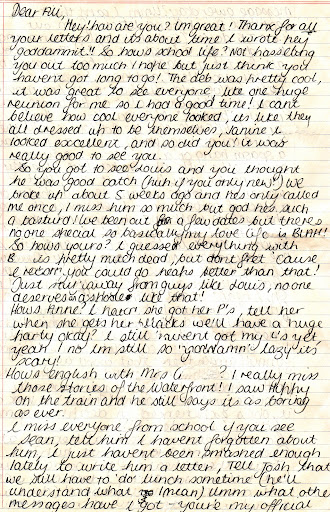 Dear Ali,
Hey! how are you? Im great! Thanx for all
your letters and its about time I wrote hey
goddammit!! So hows school life? Not hassleling
you out too much I hope but just think you
havent got long to go! The deb was pretty cool,
it was great to see everyone, like one huge
reunion for me so I had a good time! I cant
believe how cool everyone looked, its like they
all dressed up to be themselves, Janine
looked excellent, and so did you! it was
really good to see you.
So you got to see Louis and you thought
he was good catch (huh if you only new!) We
broke up about 5 weeks ago and hes only called
me once, I miss him so much but god hes such
a bastard! Ive been out for a few dates but theres
no one special so basically my love life is BLAH!
So hows yours? I guess everything with
B is pretty much dead, but dont fret 'cause
I recon you could do heaps better than that!
Just stay away from guys like Louis, no one
deserves like that!
Hows Anne? I hear she got her P's, tell her
when she gets her blacks we'll have a huge
party okay? I still havent got my L's yet
yeah I no im still so goddamn lazy its
scary!
Hows English with Mrs G ? I really miss
those stories of the Waterfront! I saw
on the train and he still says its as boring
as ever.
I miss everyone from school if you see
Sean, tell him I havent forgotten about
him, I just havent been smashed enough
lately to write him a letter, Tell Josh that
we still have to 'do' lunch sometime (he'll
understand what I mean) umm what other
messages have I got - you're my official